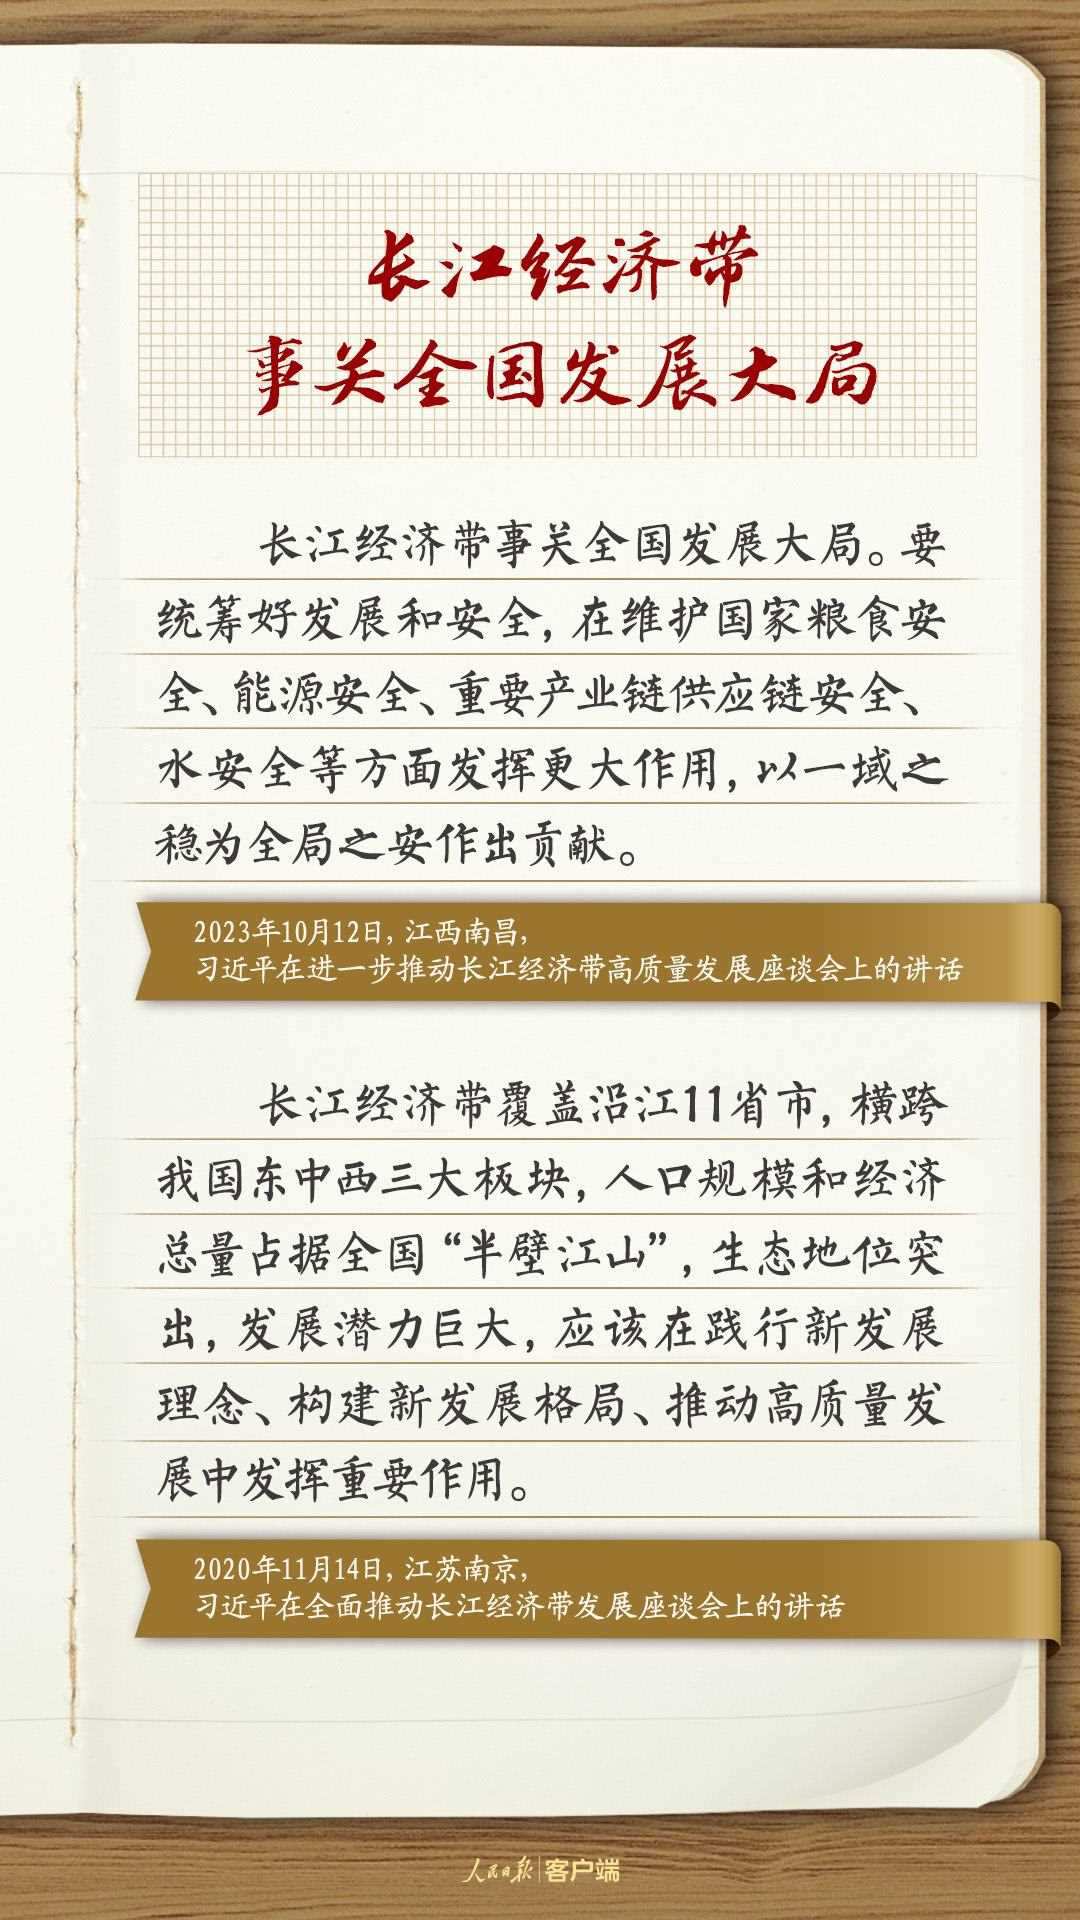 长江经济带
事关全国发展大局
长江经济带事关全国发展大局。要
统筹好发展和安全，在维护国家粮食安
全、能源安全、重要产业链供应链安全、
水安全等方面发挥更大作用，以一域之
稳为全局之安作出贡献。
2023年10月12日，江西南昌，
习近平在进一步推动长江经济带高质量发展座谈会上的讲话
长江经济带覆盖沿江11省市，横跨
我国东中西三大板块，人口规模和经济
总量占据全国“半壁江山”，生态地位突
出，发展潜力巨大，应该在践行新发展
理念、构建新发展格局、推动高质量发
展中发挥重要作用。
2020年11月14日，江苏南京，
习近平在全面推动长江经济带发展座谈会上的讲话
人民日报 客户端